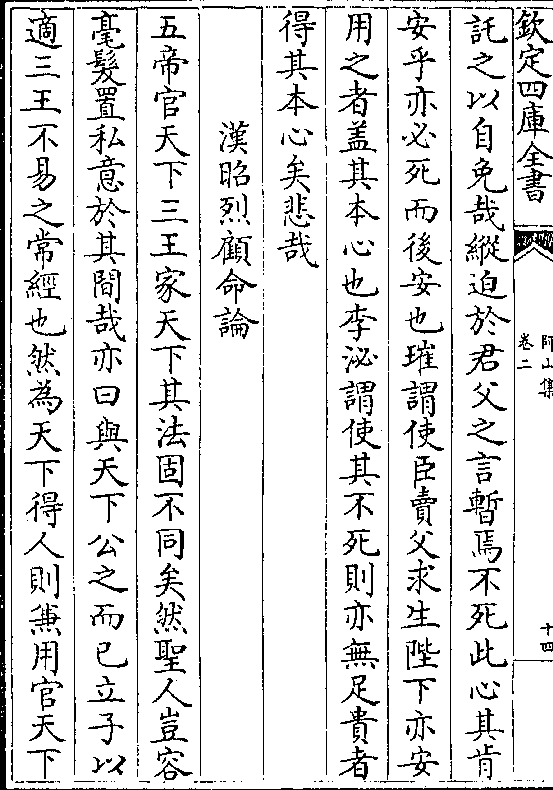 欽定四庫全書
師山集
卷二
十四
託之以自免哉縱迫於君父之言暫焉不死此心其肯
安乎亦必死而後安也璀謂使臣賣父求生陛下亦安
用之者盖其本心也李泌謂使其不死則亦無足貴者
得其本心矣悲哉
漢昭烈顧命論
五帝官天下三王家天下其法固不同矣然聖人豈容
毫髮置私意於其間哉亦曰與天下公之而已立子以
適三王不易之常經也然為天下得人則兼用官天下